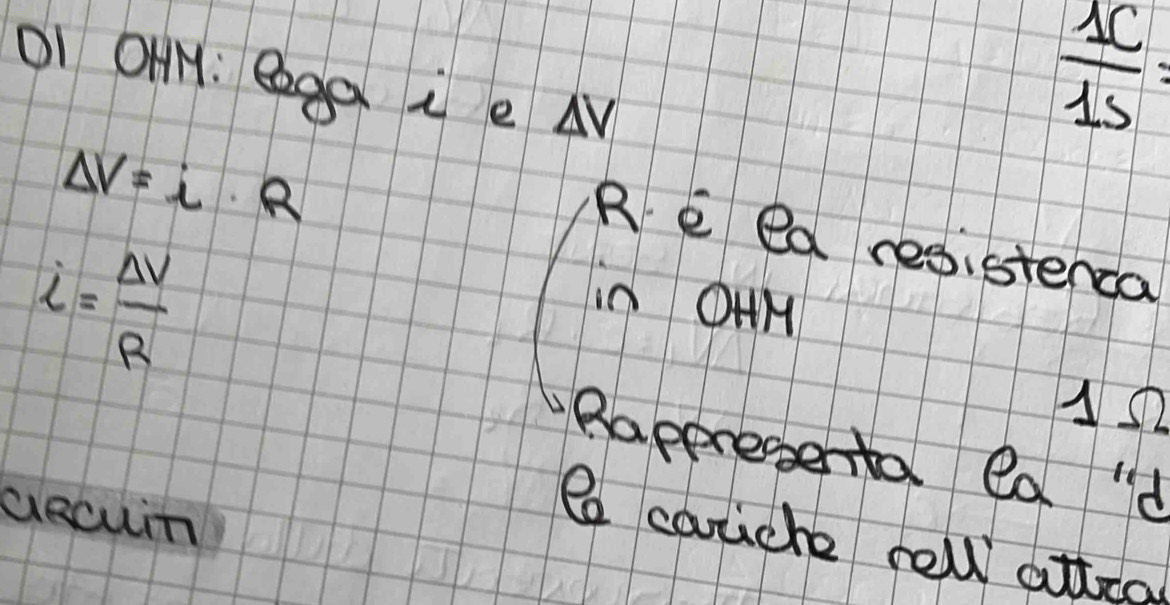 DI OHM: lega i e ΔV
1C
1s =
ΔV = i · R
i = ΔV
R
R è la resistenza
in OHM
1 Ω
Rappresenta la "d
le cariche nell'attra
CIRCUITI